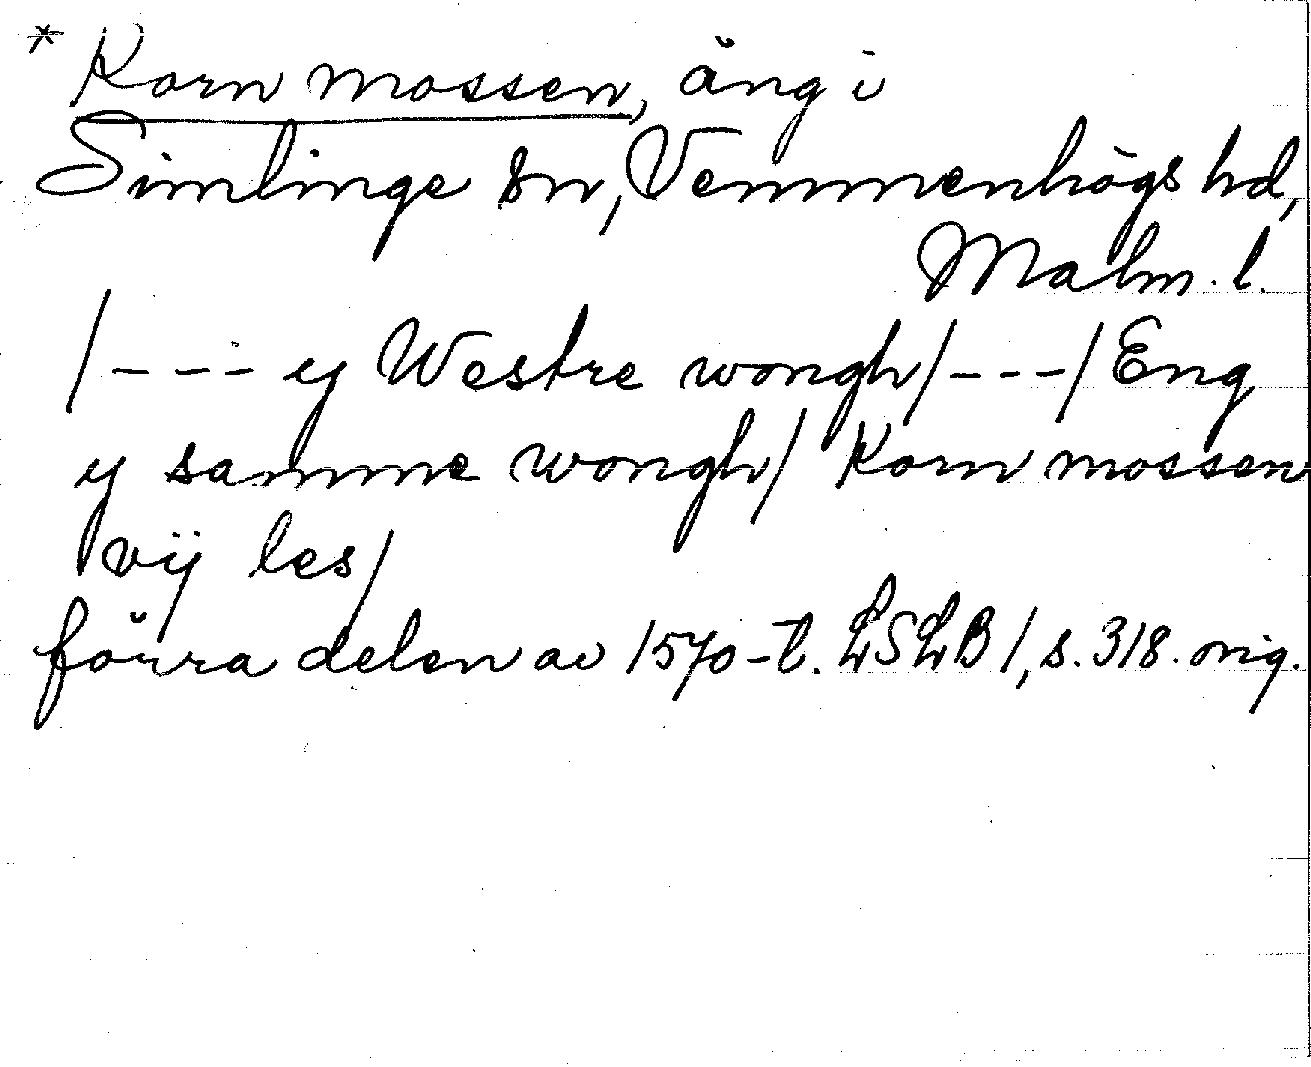 * Korn mossen, äng i
Simlinge sn, Vemmenhögs hd,
Malm. l.
/--- y Westre wongh/---/ Eng
y samme wongh/ Korn mossen
vij les/
förra delen av 1570-t. LSLB 1, s. 318. orig.